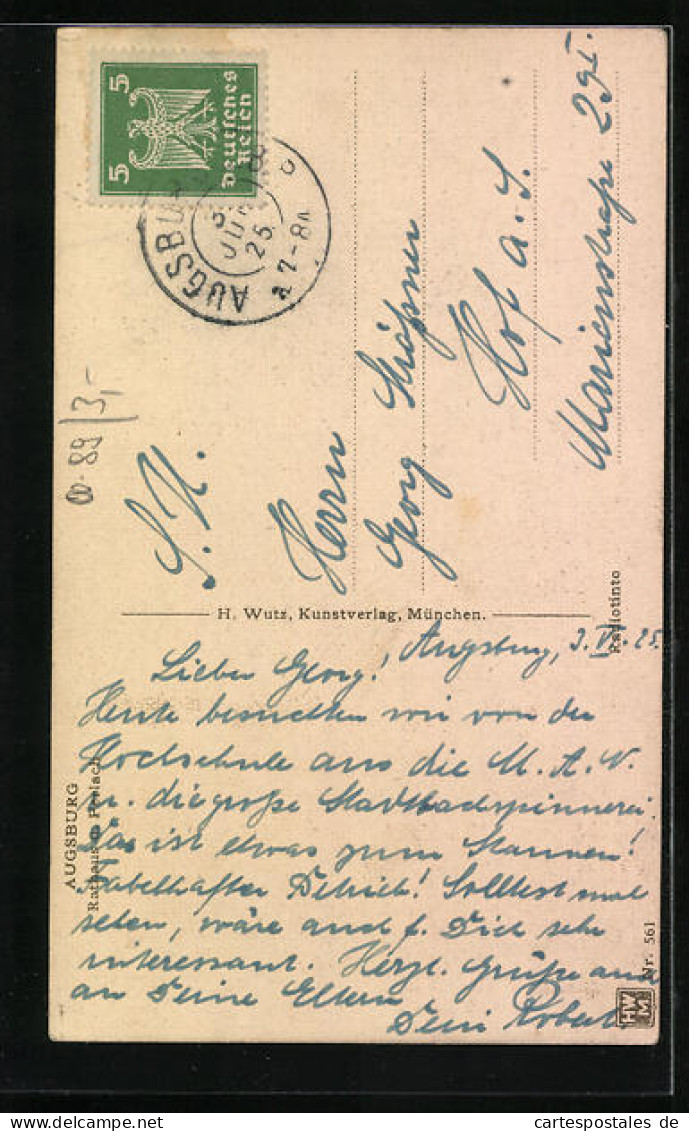 5 5
Deutsches
Reich
AUGSBURG
3
JUN
25
7-8
89/3,-
Herrn
Georg
Hof a. S.
Marienstraße
H. Wutz, Kunstverlag, München.
Radiotinto
AUGSBURG
Rathaus m. Perlach
Nr. 561
HWM
Augsburg, 3. VI. 25.
Lieber Georg!
Heute besuchten wir von der
Hochschule aus die M. A. N.
u. die große Stadtbachspinnerei.
Das ist etwas zum Staunen!
Fabelhafter Betrieb! Solltest mal
sehen, wäre auch f. Dich sehr
interessant. Herzl. Grüße auch
an Deine Eltern
Dein Robert
cartespostales.de@delcampe.net